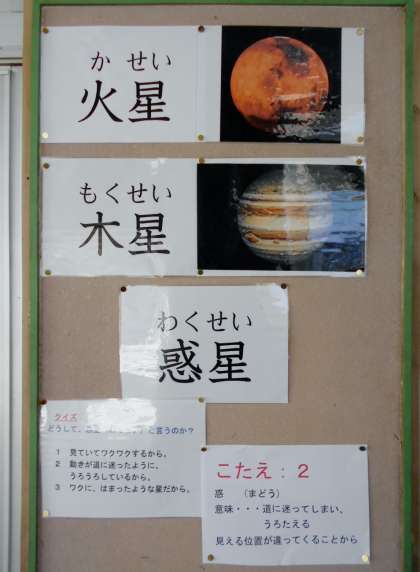 かせい
火星
もくせい
木星
わくせい
惑星
クイズ
どうして、 と言うのか？
1 見ていてワクワクするから。
2 動きが道に迷ったように、
うろうろしているから。
3 ワクに、はまったような星だから。
こたえ：2
惑 （まどう）
意味・・・道に迷ってしまい、
うろたえる
見える位置が違ってくることから